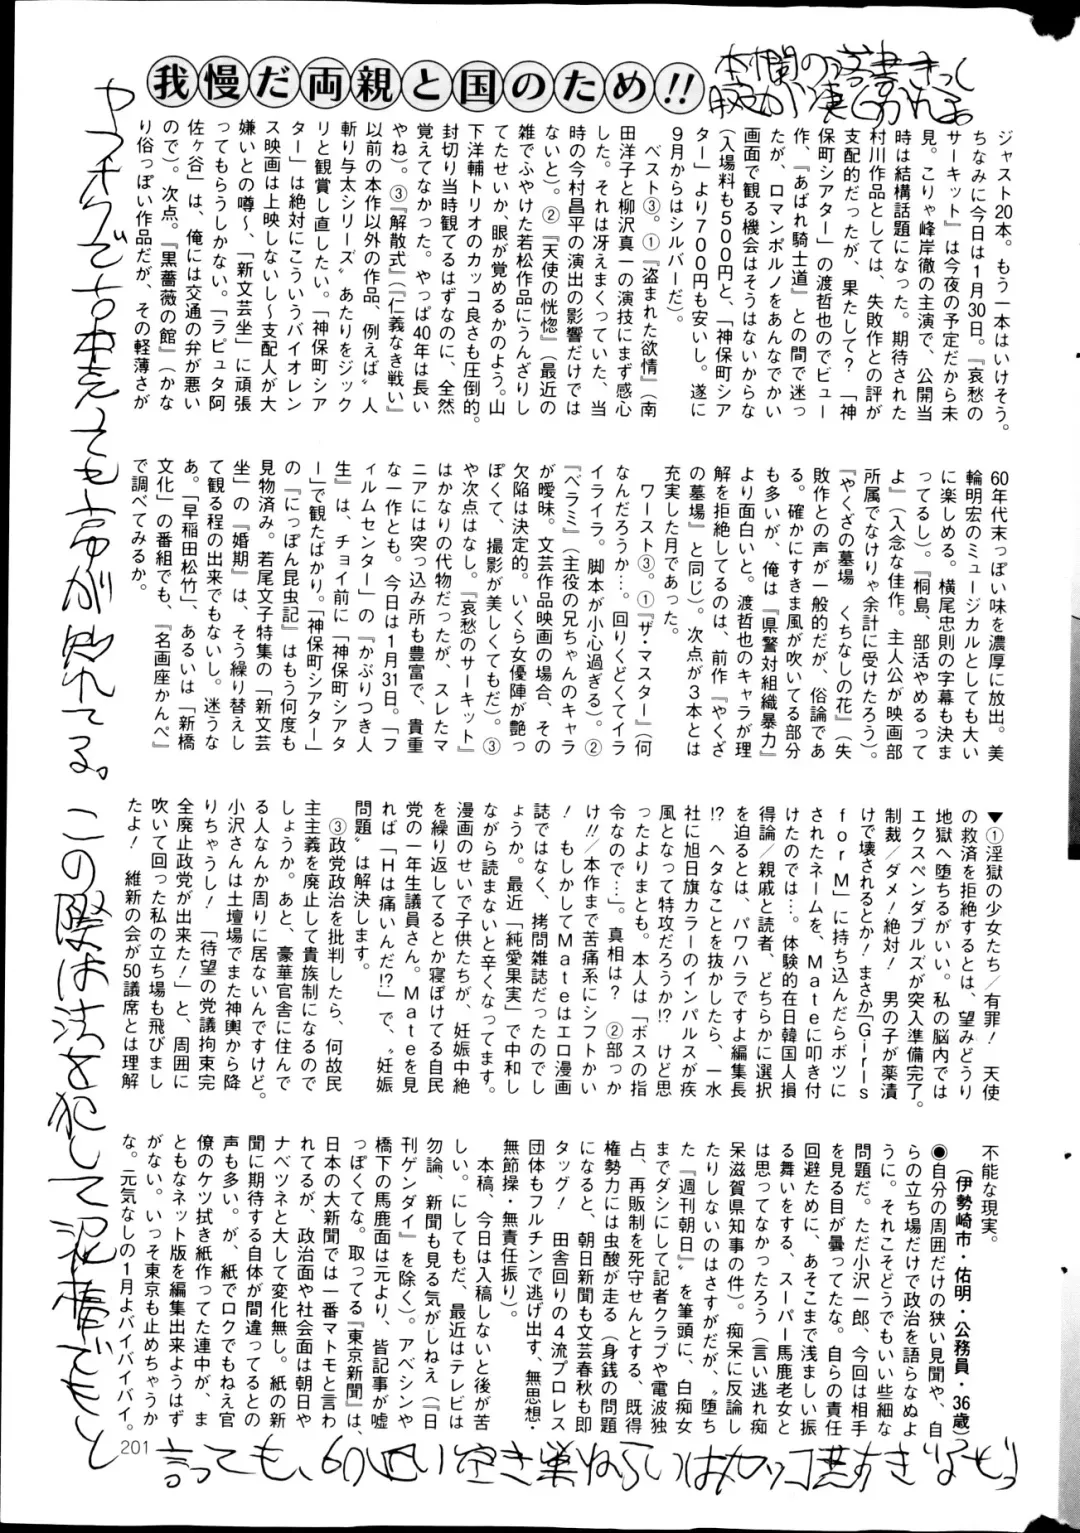 我慢だ両親と国のため!!
ジャスト20本。もう一本はいけそう。
ちなみに今日は1月30日。『哀愁の
サーキット』は今夜の予定だから未
見。こりゃ峰岸徹の主演で、公開当
時は結構話題になった。期待された
村川作品としては、失敗作との評が
支配的だったが、果たして?「神
保町シアター」の渡哲也のでビュー
作、『あばれ騎士道』との間で迷っ
たが、ロマンポルノをあんなでかい
画面で観る機会はそうはないからな
(入場料も500円と、「神保町シア
ター」より700円も安いし。遂に
9月からはシルバーだ)。
ベスト③。①『盗まれた欲情』(南
田洋子と柳沢真一の演技にまず感心
した。それは冴えまくっていた、当
時の今村昌平の演出の影響だけでは
ないと)。②『天使の恍惚』(最近の
雑でふやけた若松作品にうんざりし
てたせいか、眼が覚めるかのよう。山
下洋輔トリオのカッコ良さも圧倒的。
封切り当時観てるはずなのに、全然
覚えてなかった。やっぱ40年は長い
やね)。③『解散式』(『仁義なき戦い』
以前の本作以外の作品、例えば〝人
斬り与太シリーズ〟あたりをジック
リと観賞し直したい。「神保町シア
ター」は絶対にこういうバイオレン
ス映画は上映しないし〜支配人が大
嫌いとの噂〜、「新文芸坐」に頑張
ってもらうしかない。「ラピュタ阿
佐ヶ谷」は、俺には交通の弁が悪い
ので)。次点。『黒薔薇の館』(かな
り俗っぽい作品だが、その軽薄さが
60年代末っぽい味を濃厚に放出。美
輪明宏のミュージカルとしても大い
に楽しめる。横尾忠則の字幕も決ま
ってるし)。『桐島、部活やめるって
よ』(入念な佳作。主人公が映画部
所属でなけりゃ余計に受けたろう)。
『やくざの墓場 くちなしの花』(失
敗作との声が一般的だが、俗論であ
る。確かにすきま風が吹いてる部分
も多いが、俺は『県警対組織暴力』
より面白いと。渡哲也のキャラが理
解を拒絶してるのは、前作『やくざ
の墓場』と同じ)。次点が3本とは
充実した月であった。
ワースト③。①『ザ・マスター』(何
なんだろうか…。回りくどくてイラ
イライラ。脚本が小心過ぎる)。②
『ベラミ』(主役の兄ちゃんのキャラ
が曖昧。文芸作品映画の場合、その
欠陥は決定的。いくら女優陣が艶っ
ぽくて、撮影が美しくてもだ)。③
や次点はなし。『哀愁のサーキット』
はかなりの代物だったが、スレたマ
ニアには突っ込み所も豊富で、貴重
な一作とも。今日は1月31日。「フ
ィルムセンター」の『かぶりつき人
生』は、チョイ前に「神保町シアタ
ー」で観たばかり。「神保町シアター」
の『にっぽん昆虫記』はもう何度も
見物済み。若尾文子特集の「新文芸
坐」の『婚期』は、そう繰り替えし
て観る程の出来でもないし。迷うな
あ。「早稲田松竹」、あるいは「新橋
文化」の番組でも、『名画座かんぺ』
で調べてみるか。
▼①淫獄の少女たち/有罪! 天使
の救済を拒絶するとは、望みどうり
地獄へ堕ちるがいい。私の脳内では
エクスペンダブルズが突入準備完了。
制裁/ダメ!絶対! 男の子が薬漬
けで壊されるとか!まさか「Girls
forM」に持ち込んだらボツに
されたネームを、Mateに叩き付
けたのでは…。体験的在日韓国人損
得論/親戚と読者、どちらかに選択
を迫るとは、パワハラですよ編集長
!? ヘタなことを抜かしたら、一水
社に旭日旗カラーのインパルスが疾
風となって特攻だろうか!? けど思
ったよりまとも。本人は「ボスの指
令なので…」。真相は? ②部っか
け!!/本作まで苦痛系にシフトかい
! もしかしてMateはエロ漫画
誌ではなく、拷問雑誌だったのでし
ょうか。最近「純愛果実」で中和し
ながら読まないと辛くなってます。
漫画のせいで子供たちが、妊娠中絶
を繰り返してるとか寝ぼけてる自民
党の一年生議員さん。Mateを見
れば「Hは痛いんだ!?」で、〝妊娠
問題〟は解決します。
③政党政治を批判したら、何故民
主主義を廃止して貴族制になるので
しょうか。あと、豪華官舎に住んで
る人なんか周りに居ないんですけど。
小沢さんは土壇場でまた神輿から降
りちゃうし!「待望の党議拘束完
全廃止政党が出来た!」と、周囲に
吹いて回った私の立ち場も飛びまし
たよ! 維新の会が50議席とは理解
不能な現実。
(伊勢崎市・佑明・公務員・36歳)
●自分の周囲だけの狭い見聞や、自
らの立ち場だけで政治を語らなぬよ
うに。それこそどうでもいい些細な
問題だ。ただ小沢一郎、今回は相手
を見る目が曇ってたな。自らの責任
回避ために、あそこまで浅ましい振
る舞いをする、スーパー馬鹿老女と
は思ってなかったろう(言い逃れ痴
呆滋賀県知事の件)。痴呆に反論し
たりしないのはさすがだが、〝堕ち
た『週刊朝日』を筆頭に、白痴女
までダシにして記者クラブや電波独
占、再販制を死守せんとする、既得
権勢力には虫酸が走る(身銭の問題
になると、朝日新聞も文芸春秋も即
タッグ! 田舎回りの4流プロレス
団体もフルチンで逃げ出す、無思想・
無節操・無責任振り)。
本稿、今日は入稿しないと後が苦
しい。にしてもだ、最近はテレビは
勿論、新聞も見る気がしねえ(『日
刊ゲンダイ』を除く)。アベシンや
橋下の馬鹿面は元より、皆記事が嘘
っぽくてな。取ってる『東京新聞』は、
日本の大新聞では一番マトモと言わ
れてるが、政治面や社会面は朝日や
ナベツネと大して変化無し。紙の新
聞に期待する自体が間違ってるとの
声も多い。が、紙でロクでもねえ官
僚のケツ拭き紙作ってた連中が、ま
ともなネット版を編集出来ようはず
がない。いっそ東京も止めちゃうか
な。元気なしの1月よバイバイバイ。
ヤフオクで古本売っても高が知れてる。この際は法を犯して混ぜでもと
言っても、60近い空き巣ねらいはカッコ悪すぎるぞっ
201